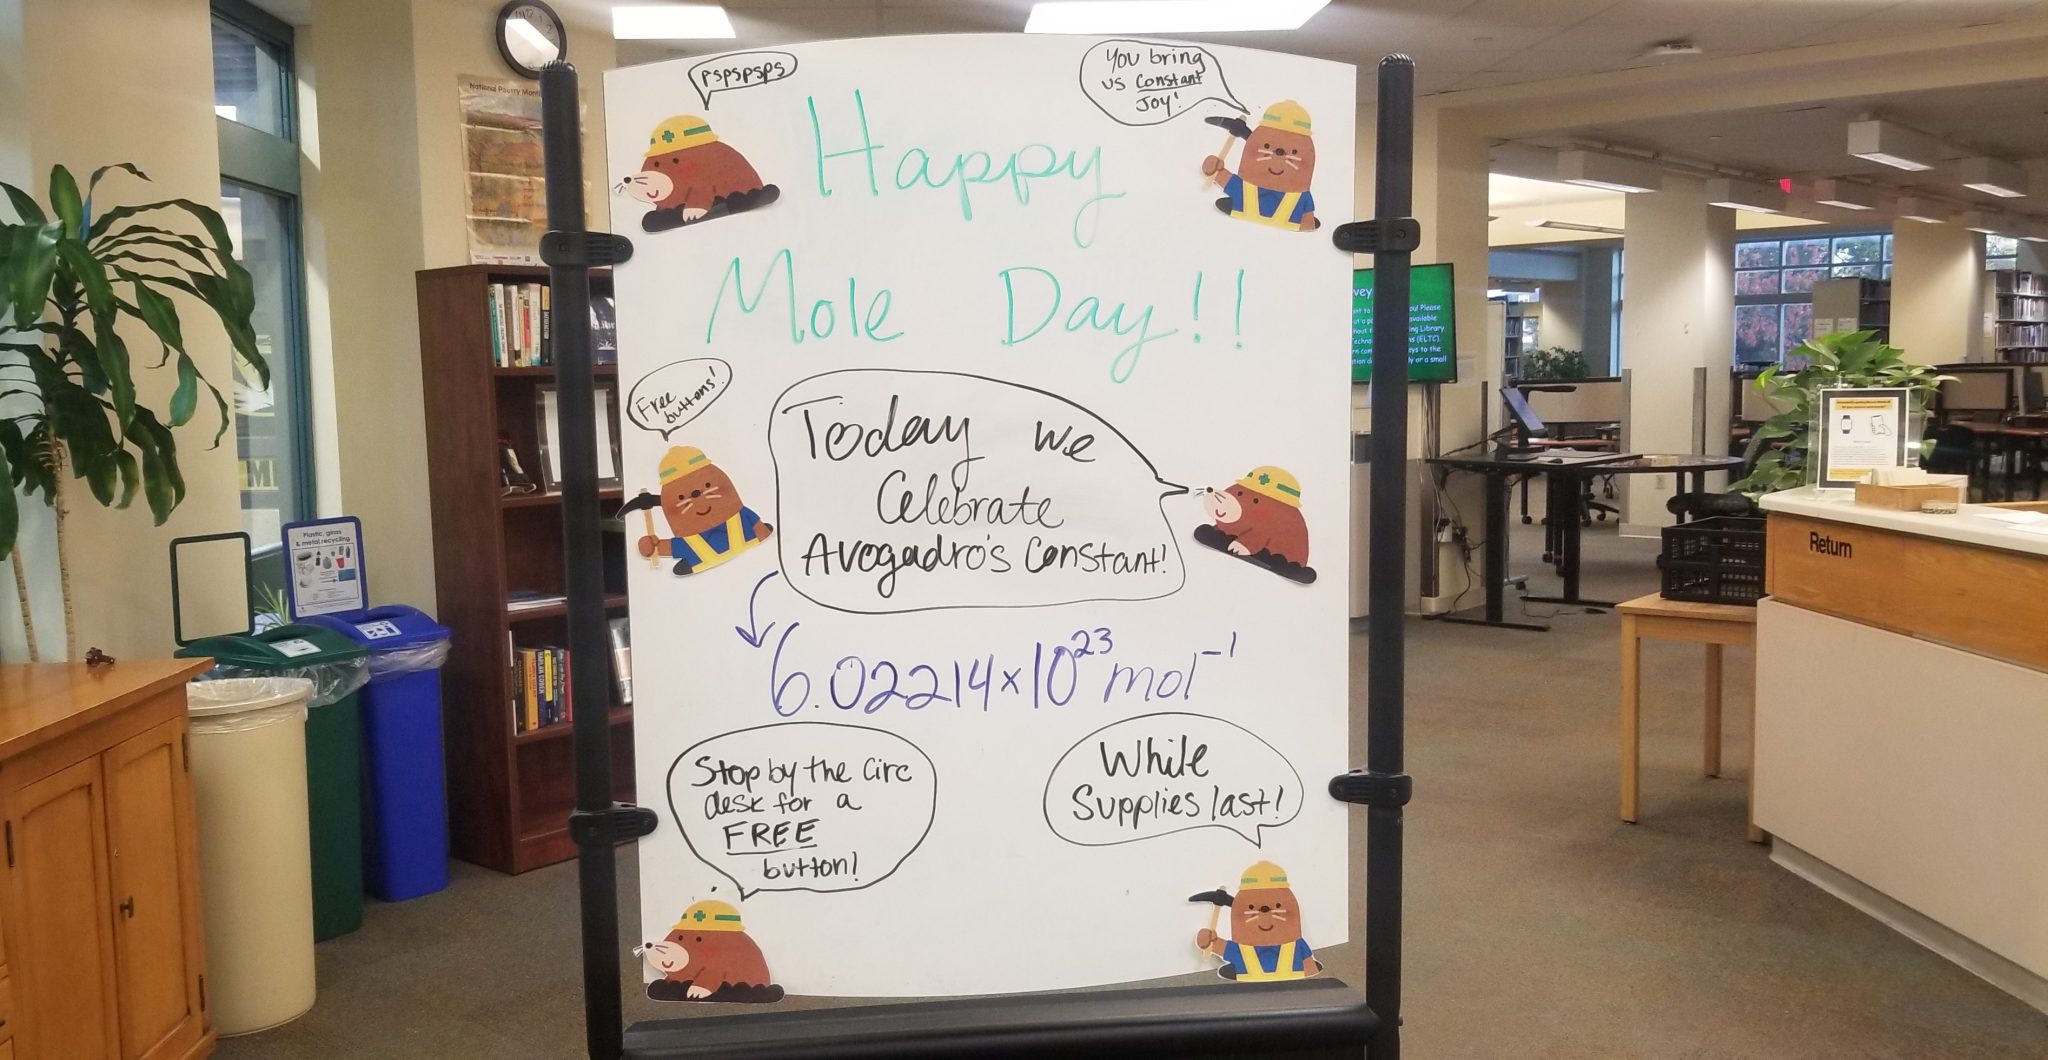 pspspsps
You bring
us Constant
Joy!
Happy
Mole Day!!
Free
buttons!
Today we
Celebrate
Avogadro's Constant!
6.02214×10²³ mol⁻¹
Stop by the Circ
desk for a
FREE
button!
While
Supplies last!
National Poetry Month
Plastic, glass
& metal recycling
Return